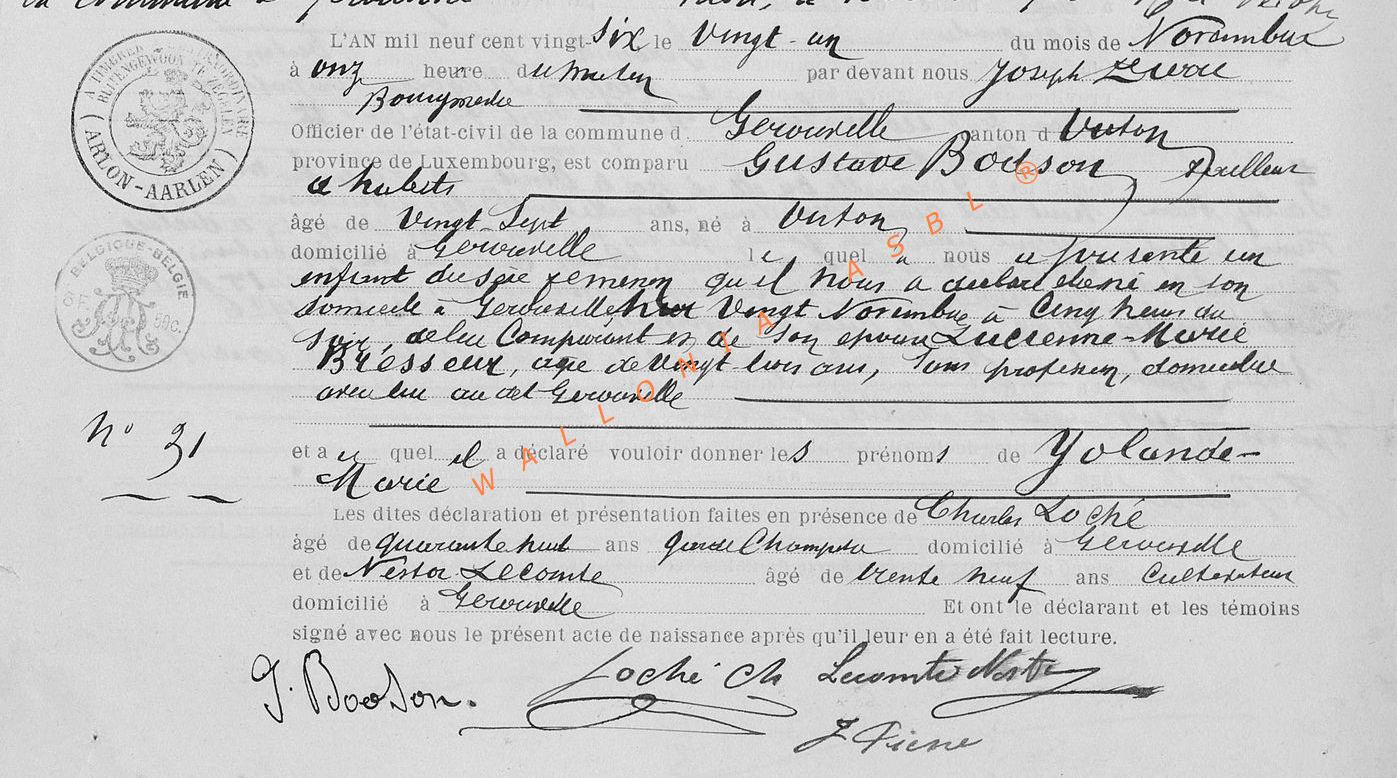 L'AN mil neuf cent vingt-six le vingt-un du mois de Novembre
à onze heure du matin par devant nous Joseph
Bourgmestre
Officier de l'état-civil de la commune d Gerouville canton d Virton
province de Luxembourg, est comparu Gustave Bodson, Tailleur
d'habits
âgé de vingt-sept ans, né à Virton,
domicilié à Gerouville le quel a nous a présenté un
enfant du sexe feminin qu'il nous a declaré etre né en son
domicile à Gerouville hier Vingt Novembre à Cinq heures du
soir, de lui Comparant et de son epouse Lucienne-Marie
Bresseur, agée de vingt-trois ans, sans profession, domiciliée
avec lui au dit Gerouville
N° 31
et au quel il a déclaré vouloir donner les prénoms de Yolande-
Marie
Les dites déclaration et présentation faites en présence de Charles Loché
âgé de quarante huit ans garde Champetre domicilié à Gerouville
et de Nestor Lecomte âgé de trente neuf ans Cultivateur
domicilié à Gerouville Et ont le déclarant et les témoins
signé avec nous le présent acte de naissance après qu'il leur en a été fait lecture.
G. Bodson. Loché Ch Lecomte Nestor
J
(ARLON-AARLEN)
BELGIQUE-BELGIE
WALLONIA ASBL ®